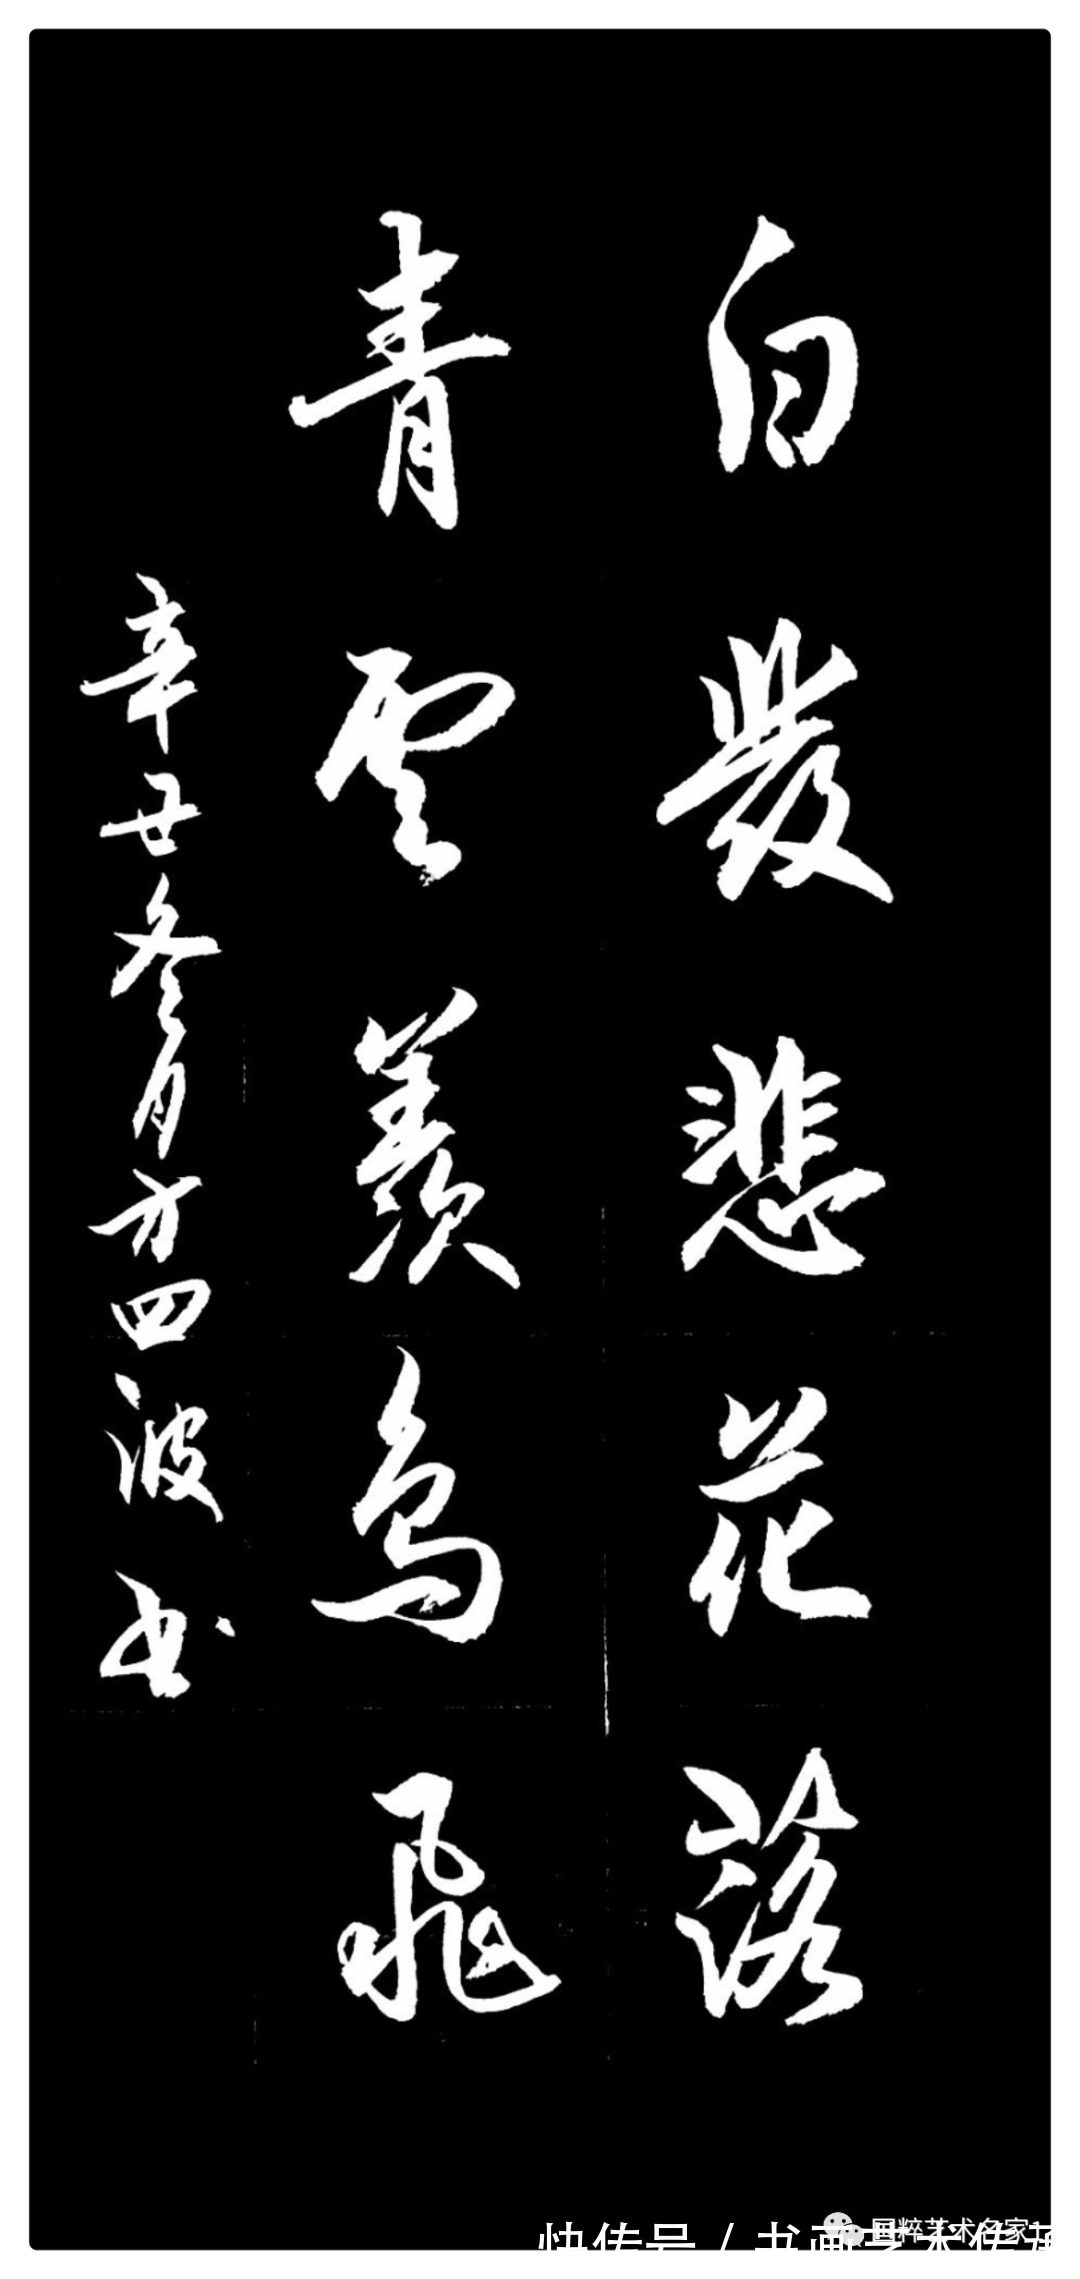 白發悲花落
青雲羨鳥飛
辛丑冬月方四波书
国粹艺术名家
快传号 / 书画艺术传承